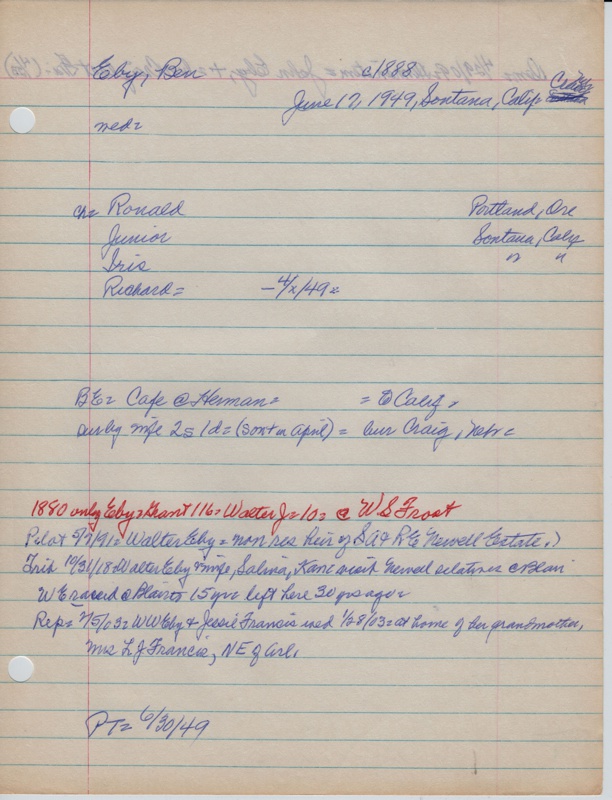 Eby, Ben c1888
June 17, 1949, Sontana, Calif=
med=
ch= Ronald Portland, Ore
Junior Sontana, Calif
Iris " "
Richard= -4/x/49=
BE= Cafe @ Herman= = to Calif=
sur by wife 2s 1d= (son + in April) = bur Craig, Nebr=
1880 only Eby= Grant 116= Walter J= 10= @ W S Frost
Pilot 5/7/91= Walter Eby= non res heir of S A & R E Newell Estate.)
Trib 10/31/18= Walter Eby & wife, Salina, Kans visit Newell relatives @ Blair
W E raised @ Blair to 15 yrs= left here 30 yrs ago=
Rep= 2/5/03= W W Eby & Jessie Francis wed 1/28/03= at home of her grandmother,
Mrs L J Francis, NE of Arl.
PT= 6/30/49